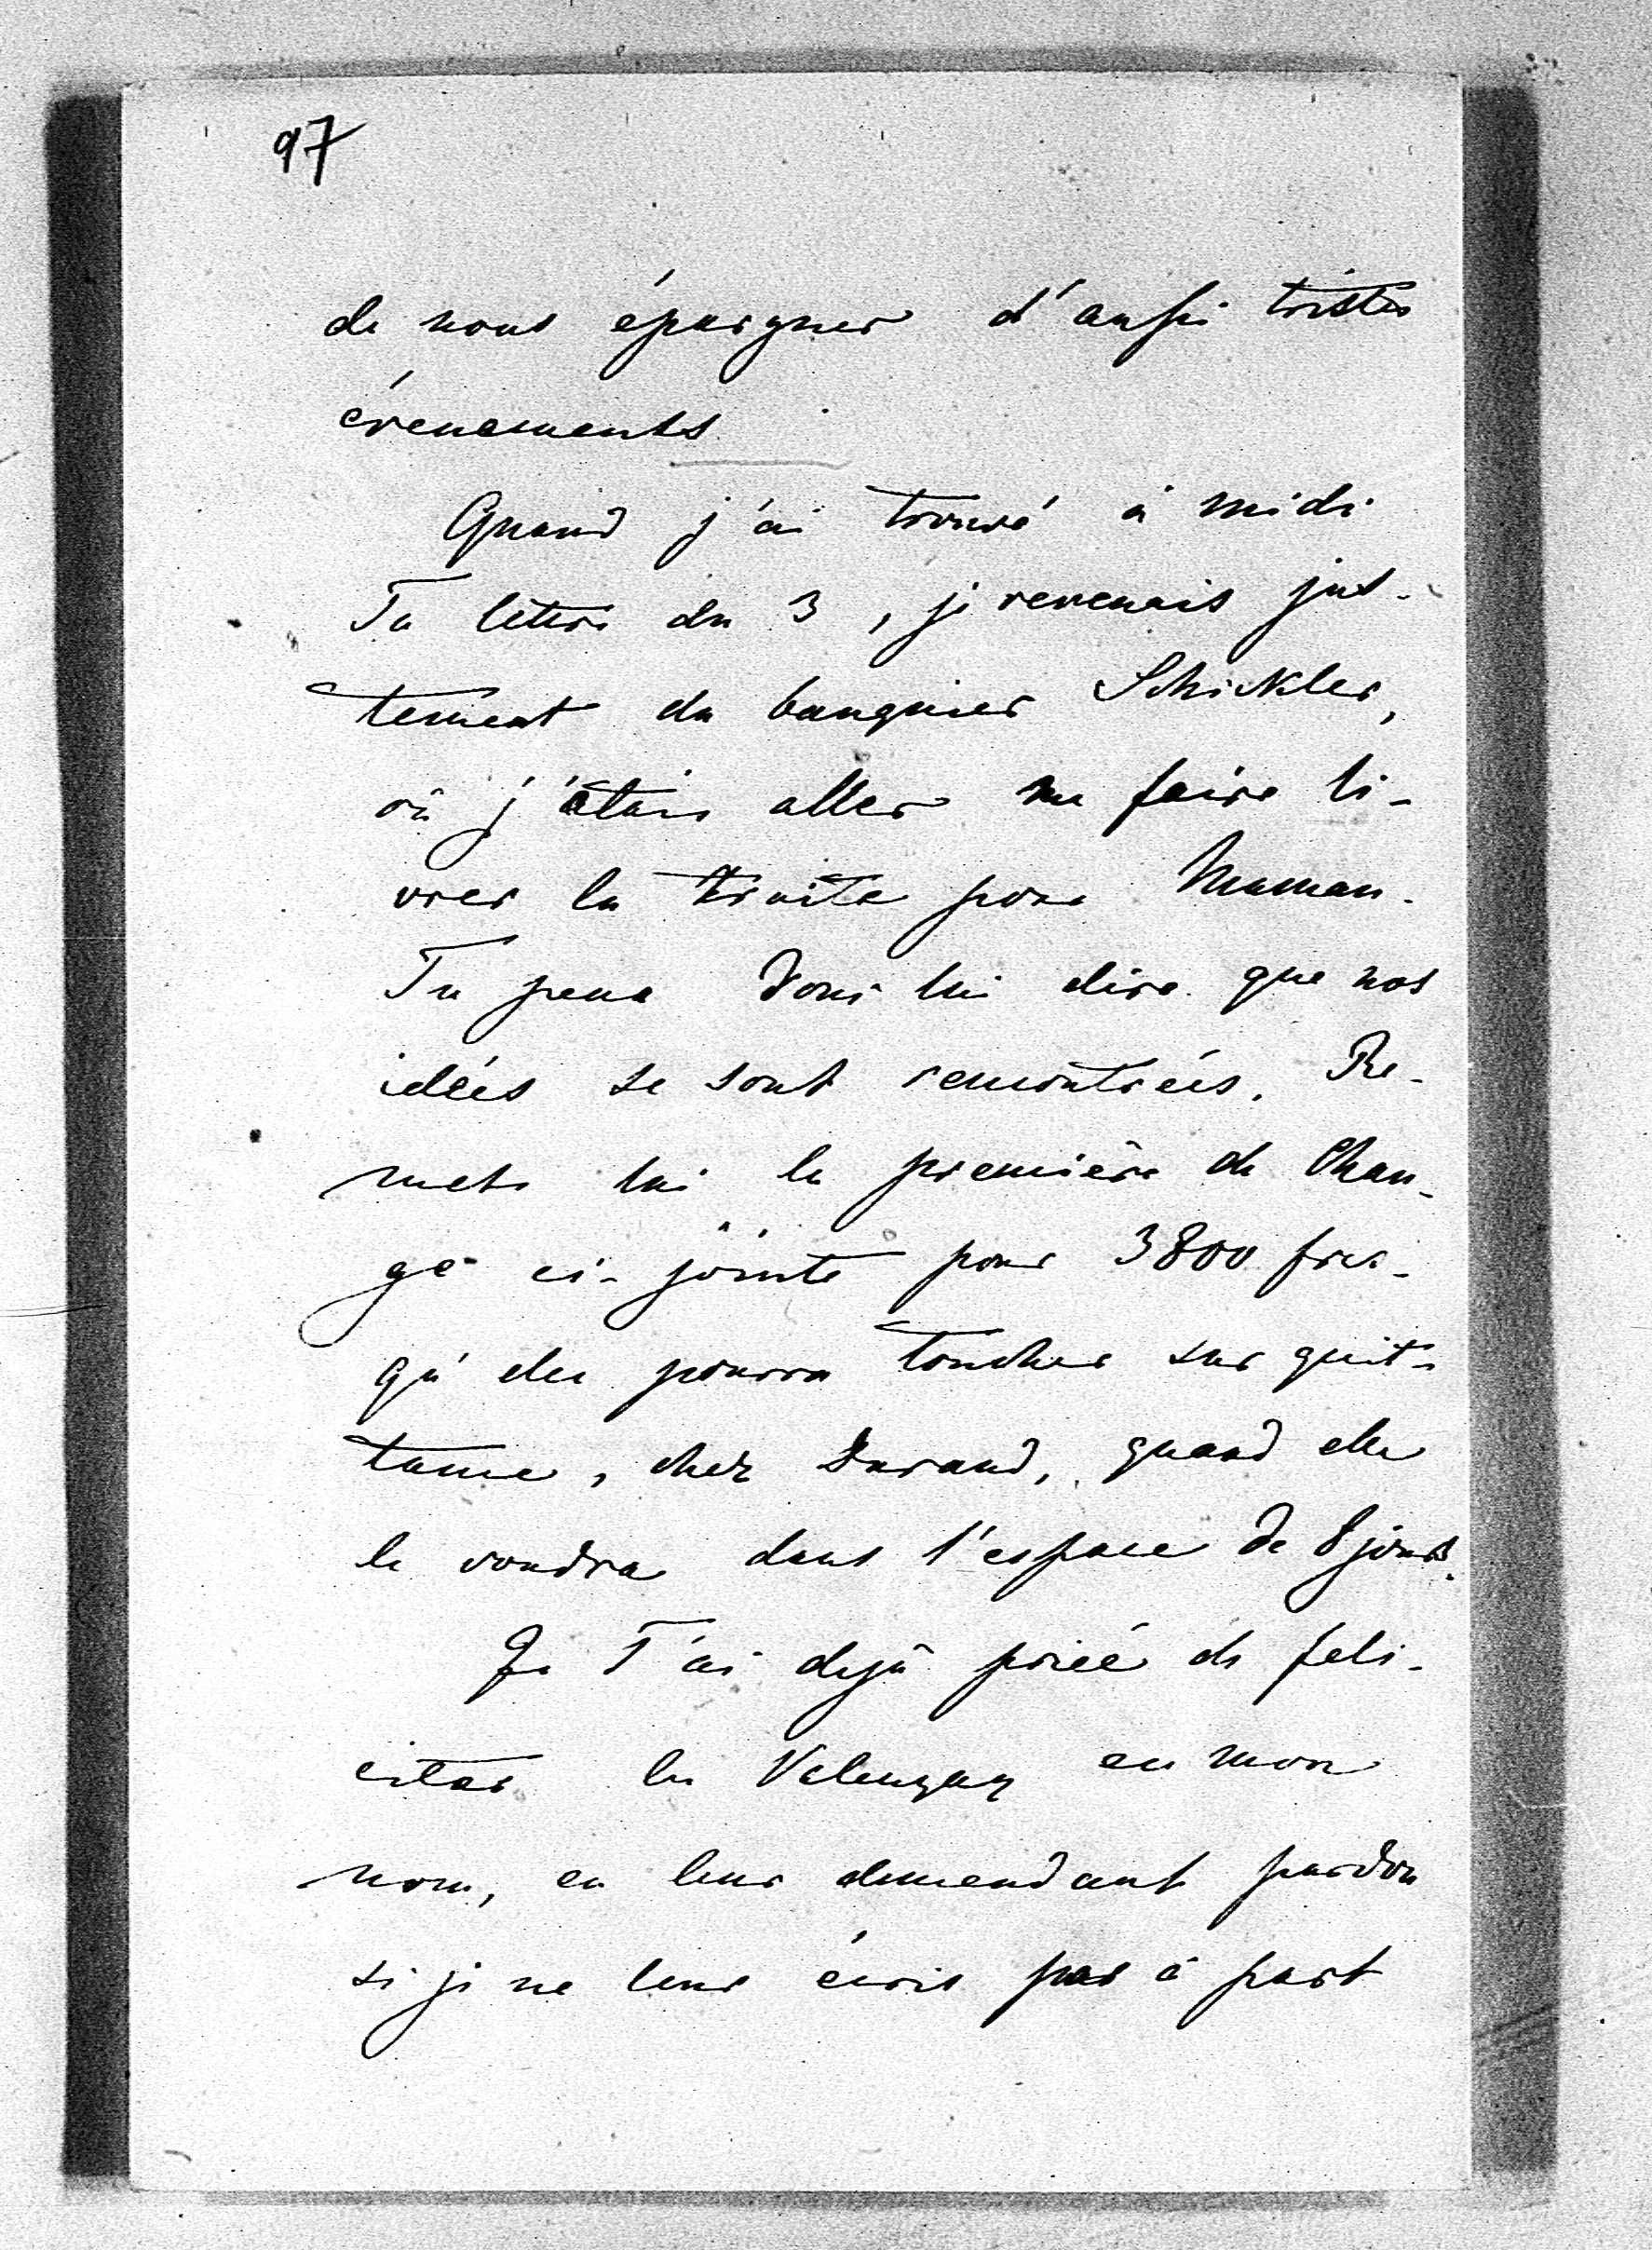 97
de nous épargner d'aussi tristes
évenements.
Quand j'ai trouvé à midi
Ta lettre du 3, je revenais jus-
tement du banquier Schickler,
où j'étais aller me faire li-
vrer la traite pour Maman.
Tu peux donc lui dire que nos
idées se sont rencontrées. Re-
mets lui la première de Chan-
ge ci-jointe pour 3800 frcs.
qu'elle pourra toucher sur quit-
tance, chez Durand, quand elle
le voudra dans l'espace de 8 jours.
Je T'ai dejà priée de feli-
citer les Valençay en mon
nom, en leur demandant pardon
si je ne leur écris pas à part